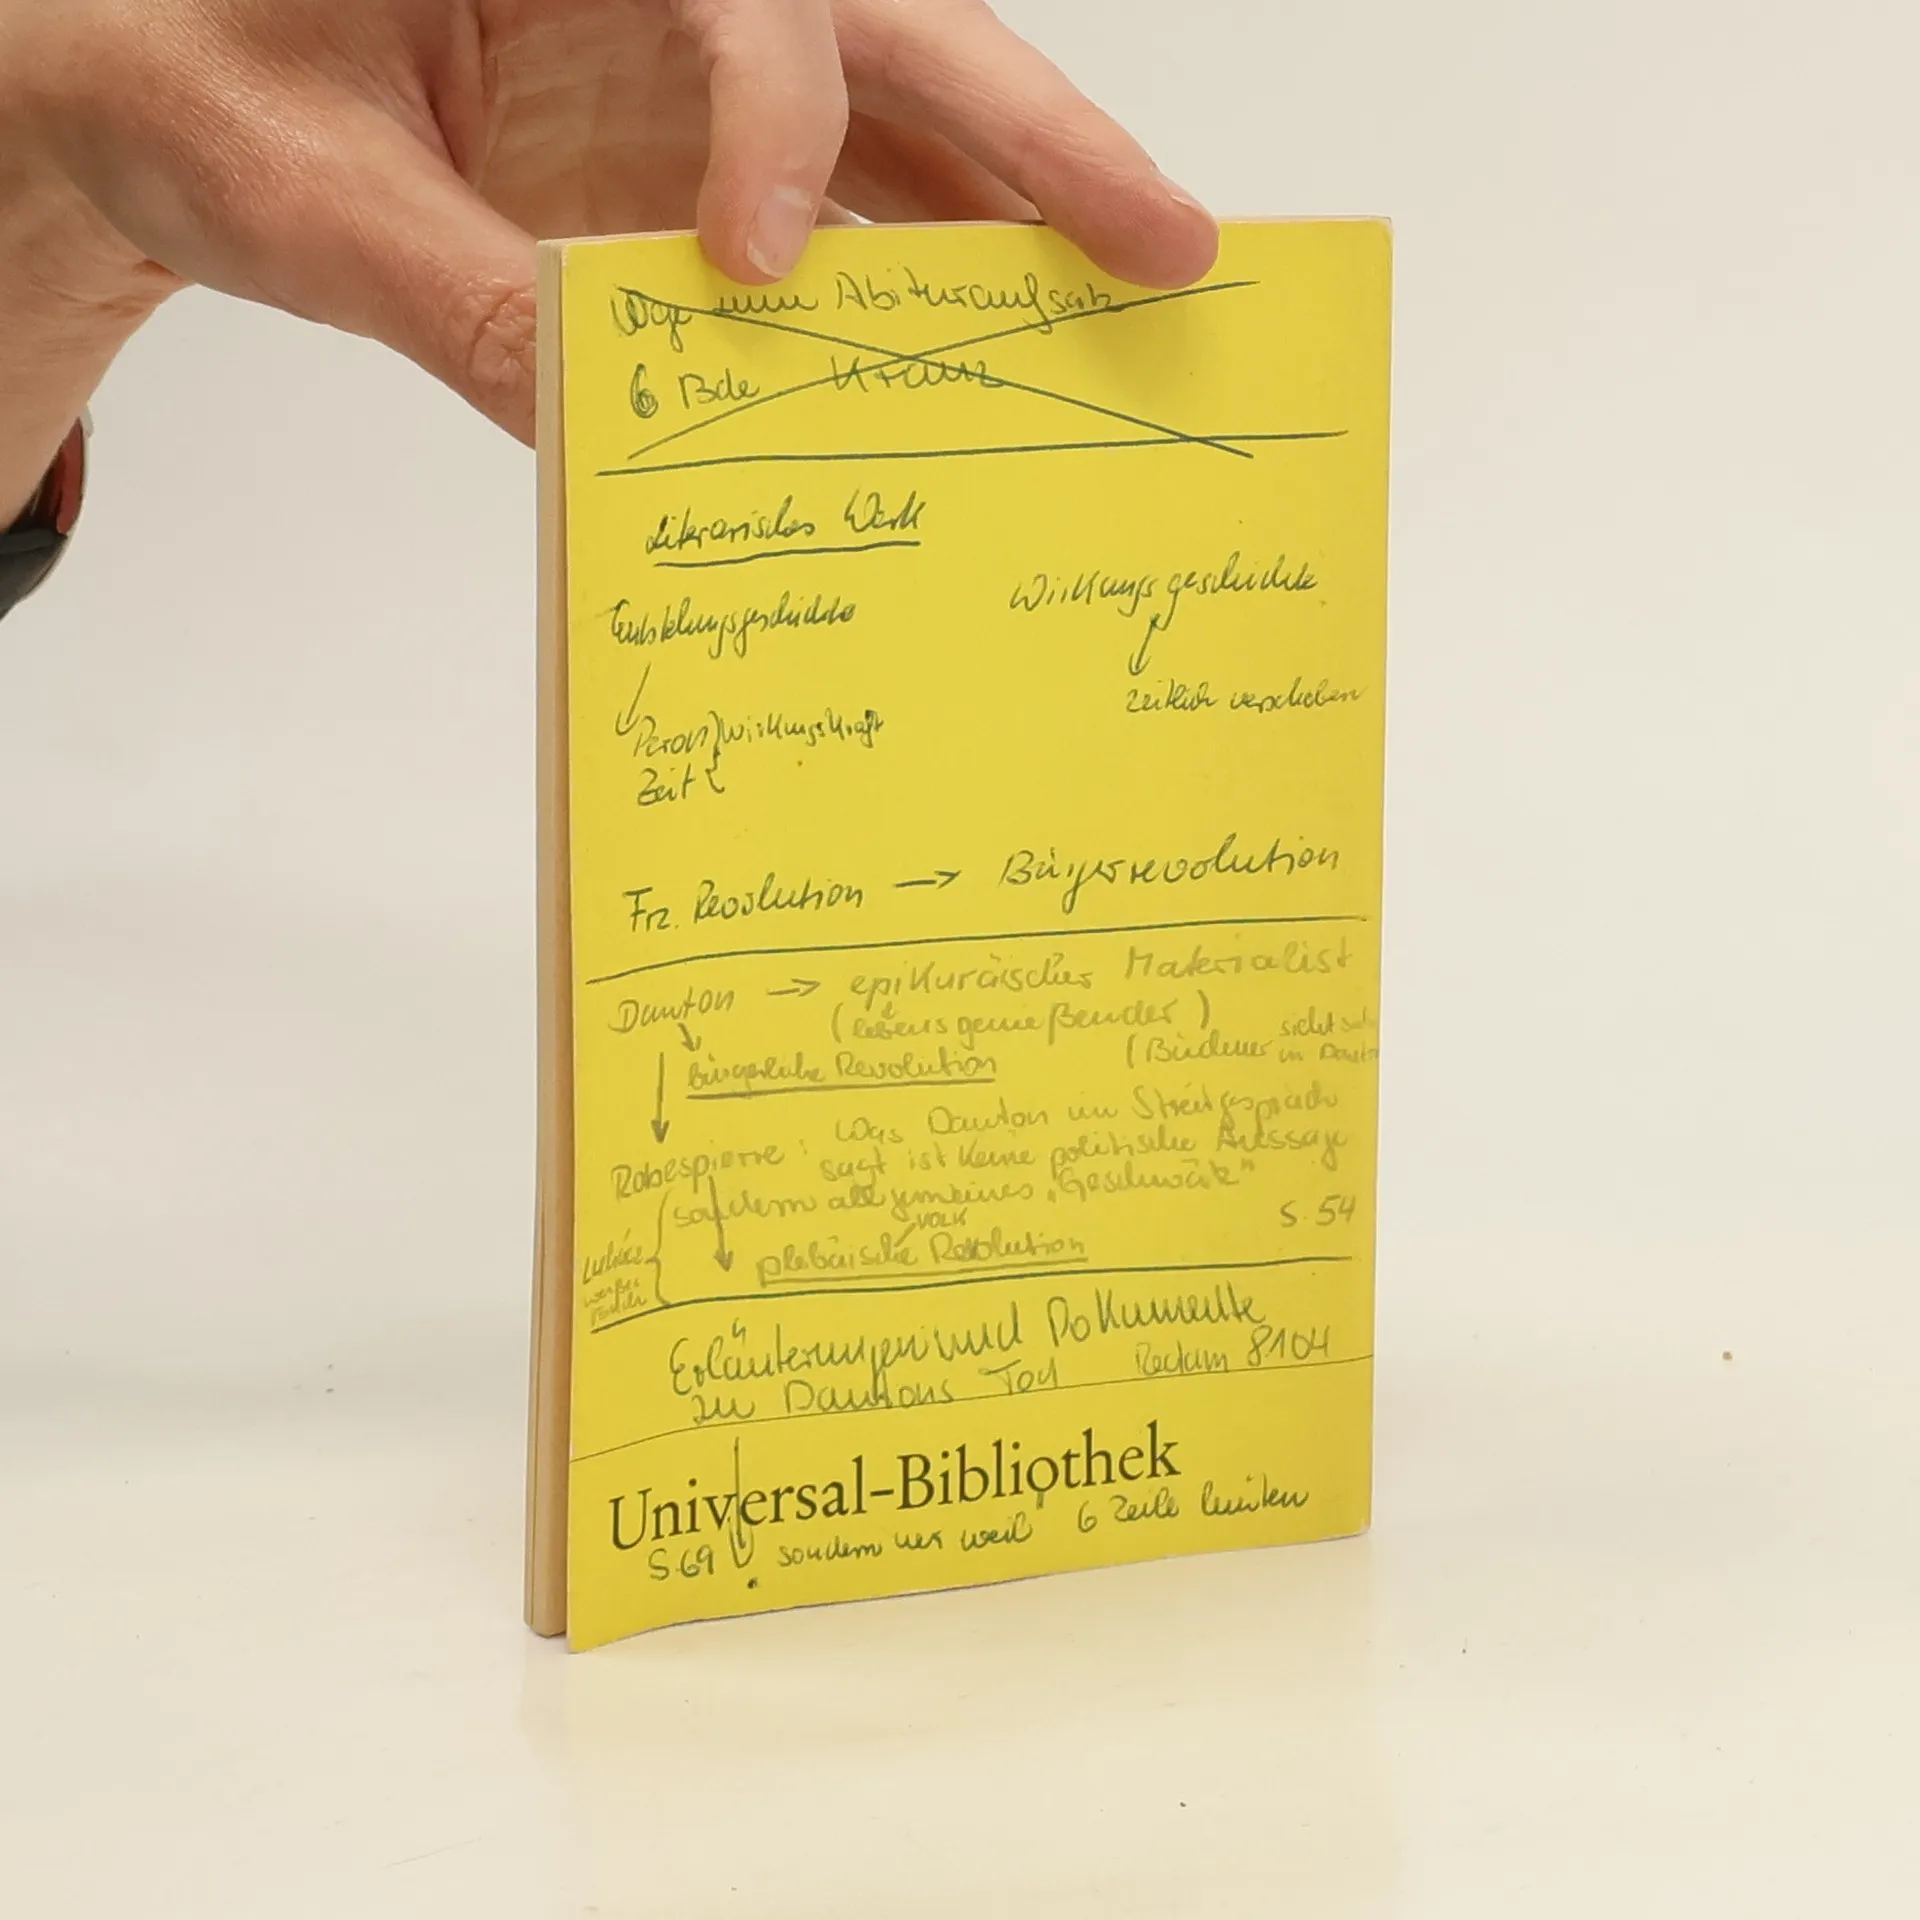 Wege zum Abituraufsatz
6 Bde Kranz
Literarisches Werk
Entstehungsgeschichte
Wirkungsgeschichte
zeitlich verschoben
Person } Wirkungskraft
Zeit
Frz. Revolution → Bürgerrevolution
Danton → epikuräischer Materialist
(lebensgenießender)
(Büchner sieht
in Danton
bürgerliche Revolution
Robespierre: Was Danton im Streitgespräch
sagt ist keine politische Aussage
sondern allgemeines „Geschwätz"
S. 54
VOLK
plebäische Revolution
Erläuterungen und Dokumente
zu Dantons Tod Reclam 8104
Universal-Bibliothek
S. 69 sondern nur weil" 6 Zeile